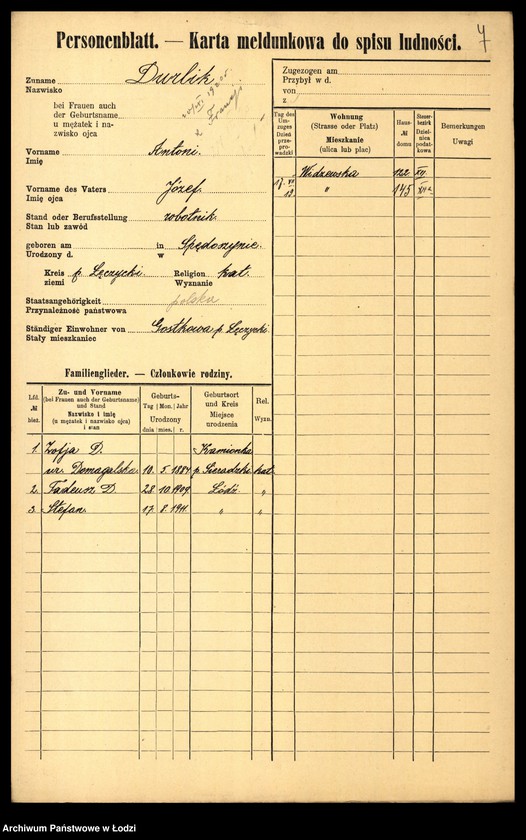 4
Personenblatt. — Karta meldunkowa do spisu ludności.
Zuname Durlik
Nazwisko
bei Frauen auch
der Geburtsname
u mężatek i na-
zwisko ojca
z Francji
Vorname Antoni.
Imię
Vorname des Vaters Józef.
Imię ojca
Stand oder Berufsstellung robotnik.
Stan lub zawód
geboren am in Spędoszynie.
Urodzony d. w
Kreis p. Łęczycki. Religion kat.
ziemi Wyznanie
Staatsangehörigkeit polska
Przynależność państwowa
Ständiger Einwohner von Gostkowa p. Łęczycki.
Stały mieszkaniec
Familienglieder. — Członkowie rodziny.
Lfd. № bież.
Zu- und Vorname
(bei Frauen auch der Geburtsname)
und Stand
Nazwisko i imię
(u mężatek i nazwisko ojca)
i stan
Geburts-
Tag Mon. Jahr
Urodzony
dnia mies. r.
Geburtsort
und Kreis
Miejsce
urodzenia
Rel.
Wyzn.
1. Zofja D. Kamionka
ur. Domagalska 10. 5. 1884 p. Sieradzki kat.
2. Tadeusz D. 28. 10. 1909 Łódź. "
3. Stefan. 17. 8. 1911 " "
Zugezogen am
Przybył w d.
von
z
Tag des
Um-
zuges
Dzień
prze-
prowadzki
Wohnung
(Strasse oder Platz)
Mieszkanie
(ulica lub plac)
Haus-
№
domu
Steuer-
bezirk
Dziel-
nica
podat-
kowa
Bemerkungen
Uwagi
Widzewska 122 XII.
17. VII " 145 XIIa
19.
Archiwum Państwowe w Łodzi